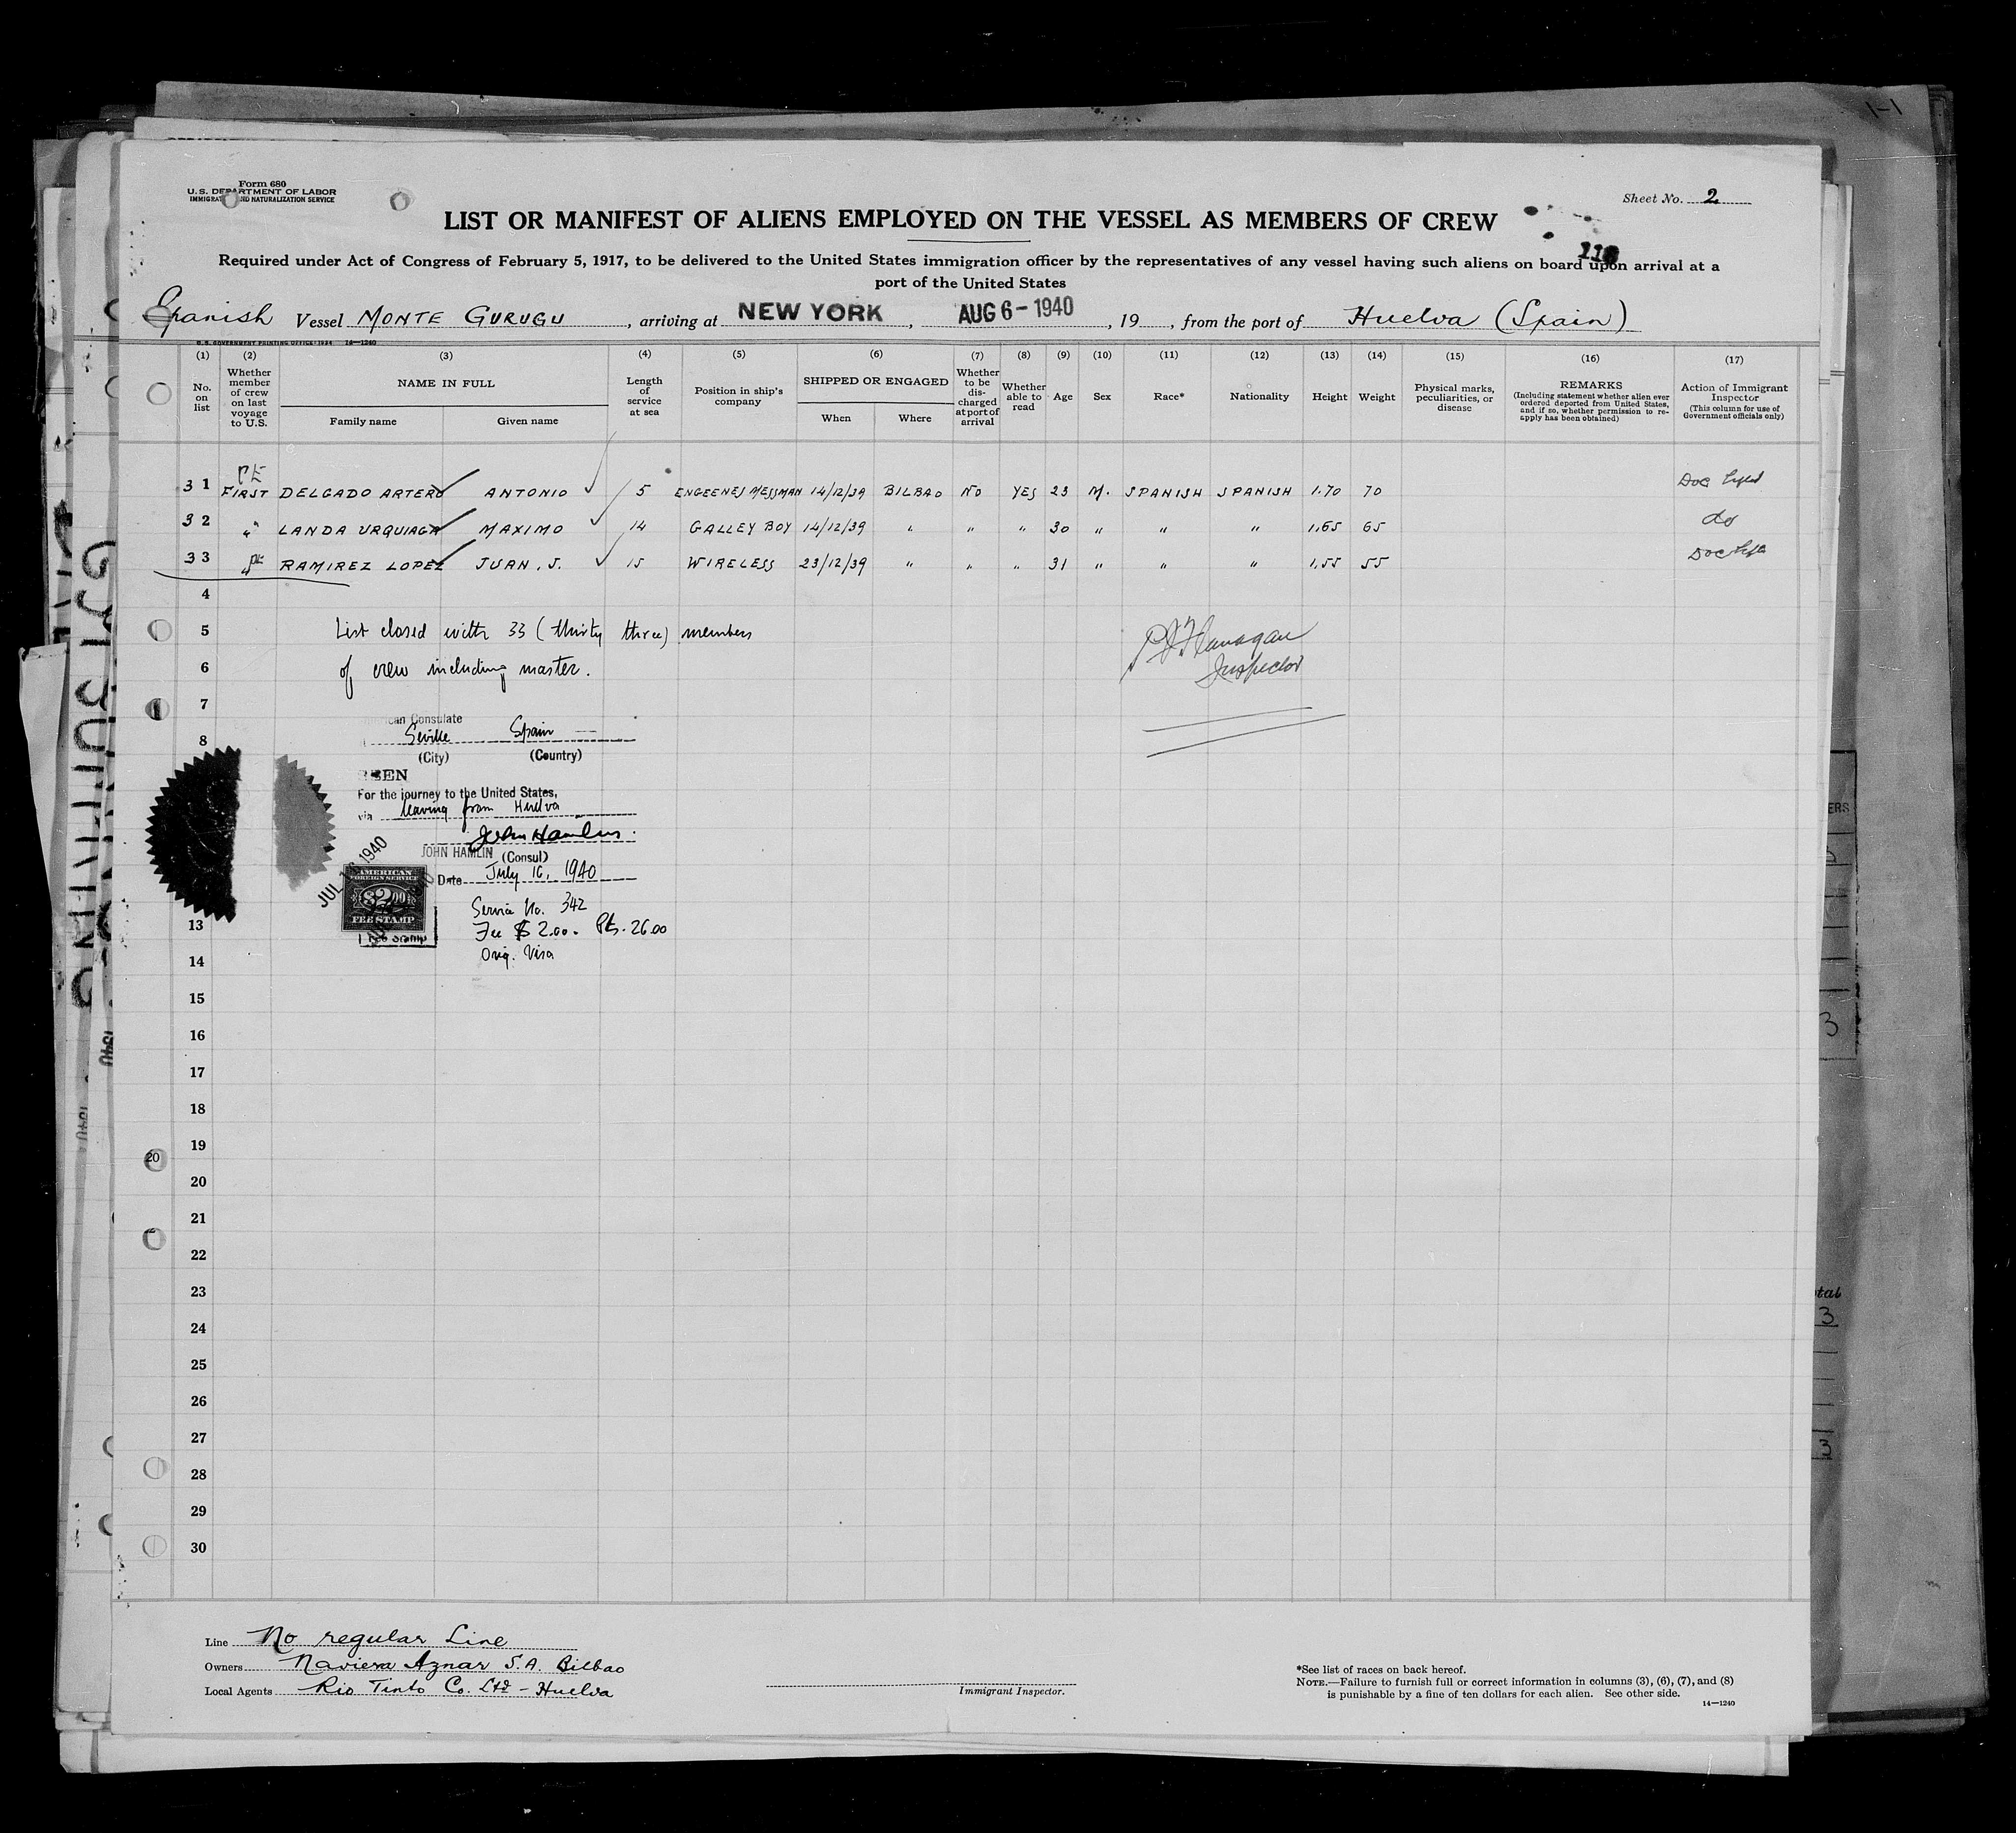 1-1
Form 680
U. S. DEPARTMENT OF LABOR
IMMIGRATION AND NATURALIZATION SERVICE
Sheet No. 2
LIST OR MANIFEST OF ALIENS EMPLOYED ON THE VESSEL AS MEMBERS OF CREW
Required under Act of Congress of February 5, 1917, to be delivered to the United States immigration officer by the representatives of any vessel having such aliens on board upon arrival at a
port of the United States
Spanish Vessel MONTE GURUGU, arriving at NEW YORK, AUG 6 - 1940, 19 , from the port of Huelva (Spain)
U. S. GOVERNMENT PRINTING OFFICE: 1934 14—1240
(1) (2) (3) (4) (5) (6) (7) (8) (9) (10) (11) (12) (13) (14) (15) (16) (17)
No. on list
Whether member of crew on last voyage to U.S.
NAME IN FULL
Family name
Given name
Length of service at sea
Position in ship's company
SHIPPED OR ENGAGED
When
Where
Whether to be discharged at port of arrival
Whether able to read
Age
Sex
Race*
Nationality
Height
Weight
Physical marks, peculiarities, or disease
REMARKS
(Including statement whether alien ever ordered deported from United States, and if so, whether permission to reapply has been obtained)
Action of Immigrant Inspector
(This column for use of Government officials only)
31 FIRST DELGADO ARTERO ANTONIO 5 ENGEENES MESSMAN 14/12/39 BILBAO NO YES 23 M. SPANISH SPANISH 1.70 70 Doc
32 " LANDA URQUIAGA MAXIMO 14 GALLEY BOY 14/12/39 " " " 30 " " " 1,65 65 do
33 " RAMIREZ LOPEZ JUAN. J. 15 WIRELESS 23/12/39 " " " 31 " " " 1,55 55 Doc
4
5 List closed with 33 (thirty three) members
6 of crew including master.
P J Flanagan
Inspector
7
American Consulate
8 Seville Spain
(City) (Country)
SEEN
For the journey to the United States,
via leaving from Huelva
John Hamlin.
JOHN HAMLIN (Consul)
Date July 16, 1940
JUL 16 1940
AMERICAN
FOREIGN SERVICE
$2.00
FEE STAMP
Service No. 342
13 Fee $ 2.00. Pts. 26.00
Orig. Visa
14
15
16
17
18
19
20
20
21
22
23
24
25
26
27
28
29
30
Line No regular Line
Owners Naviera Aznar S.A. Bilbao
Local Agents Rio Tinto Co. Ltd - Huelva
Immigrant Inspector.
*See list of races on back hereof.
NOTE.—Failure to furnish full or correct information in columns (3), (6), (7), and (8)
is punishable by a fine of ten dollars for each alien. See other side.
14—1240